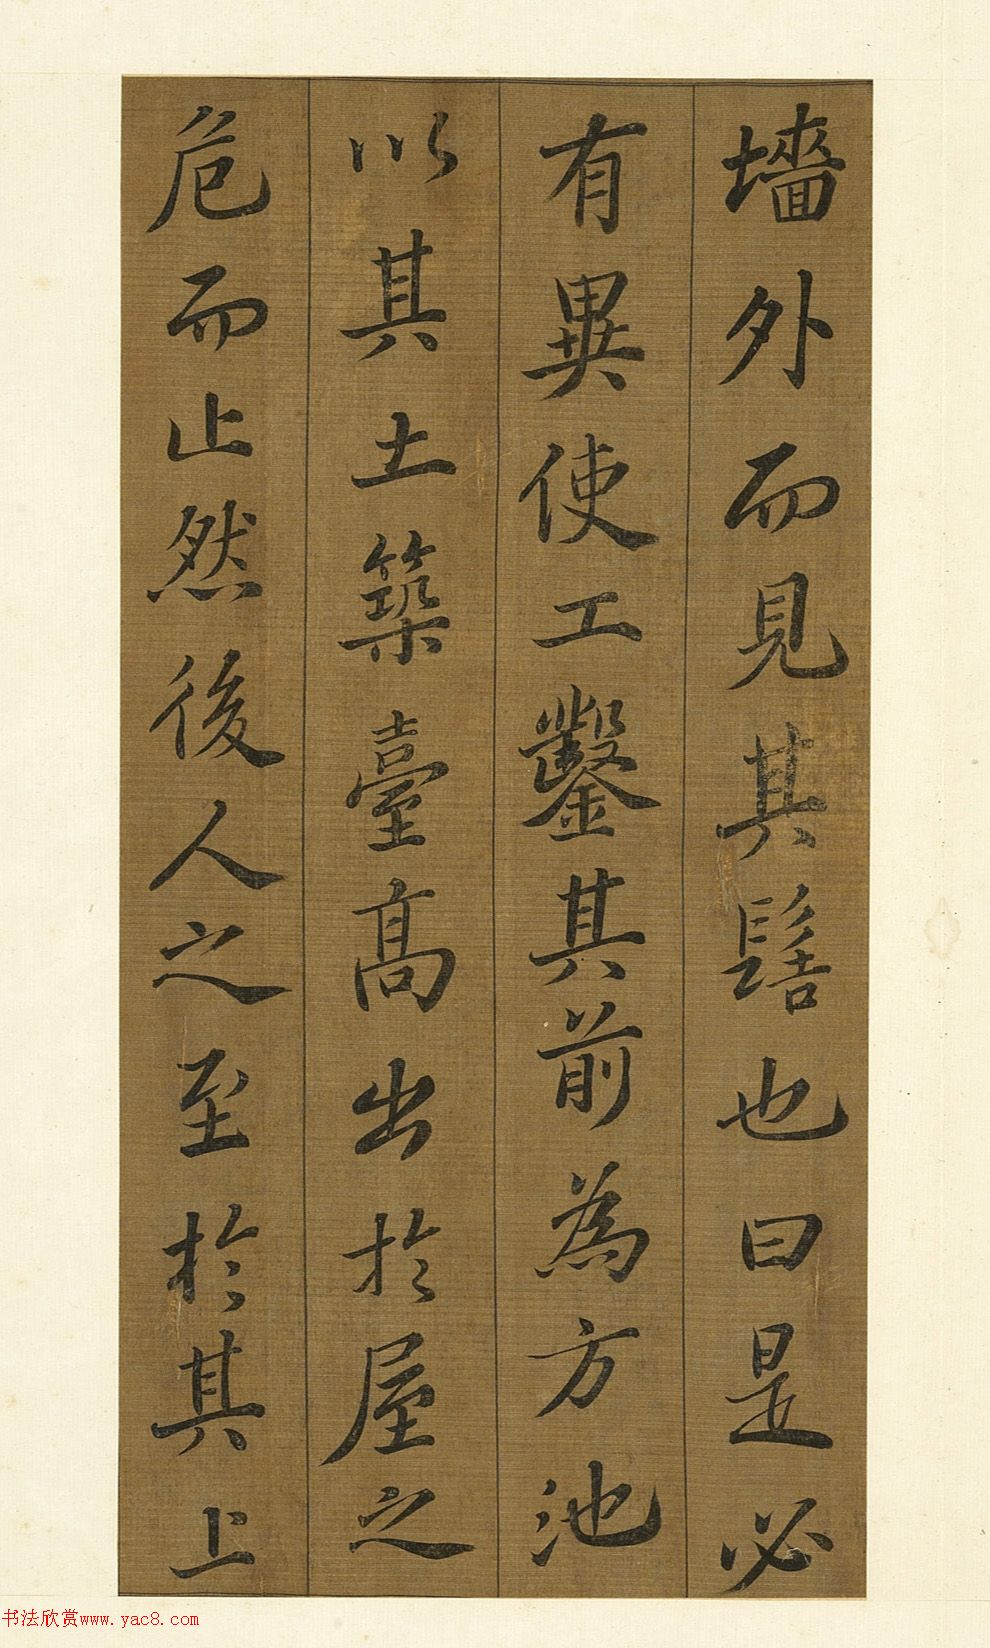 墻外而見其髻也曰是必
有異使工鑿其前為方池
以其土築臺高出於屋之
危而止然後人之至於其上
书法欣赏www.yac8.com